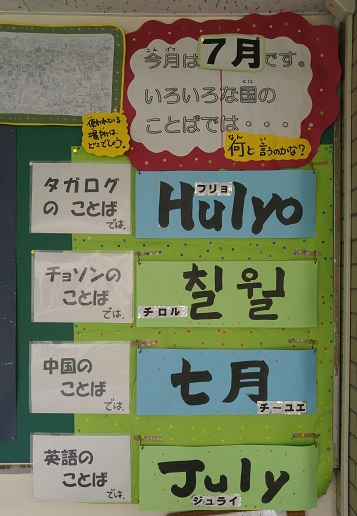 今月は7月です。
こんげつ
いろいろな国の
くに
ことばでは・・・
何と言うのかな？
なん い
使われている
場所は、
どこでしょう。
タガログ
の ことば
では、
Hulyo
フリョ
チョソンの
ことば
では、
칠월
チロル
中国の
ことば
では、
七月
チーユエ
英語の
ことば
では、
July
ジュライ